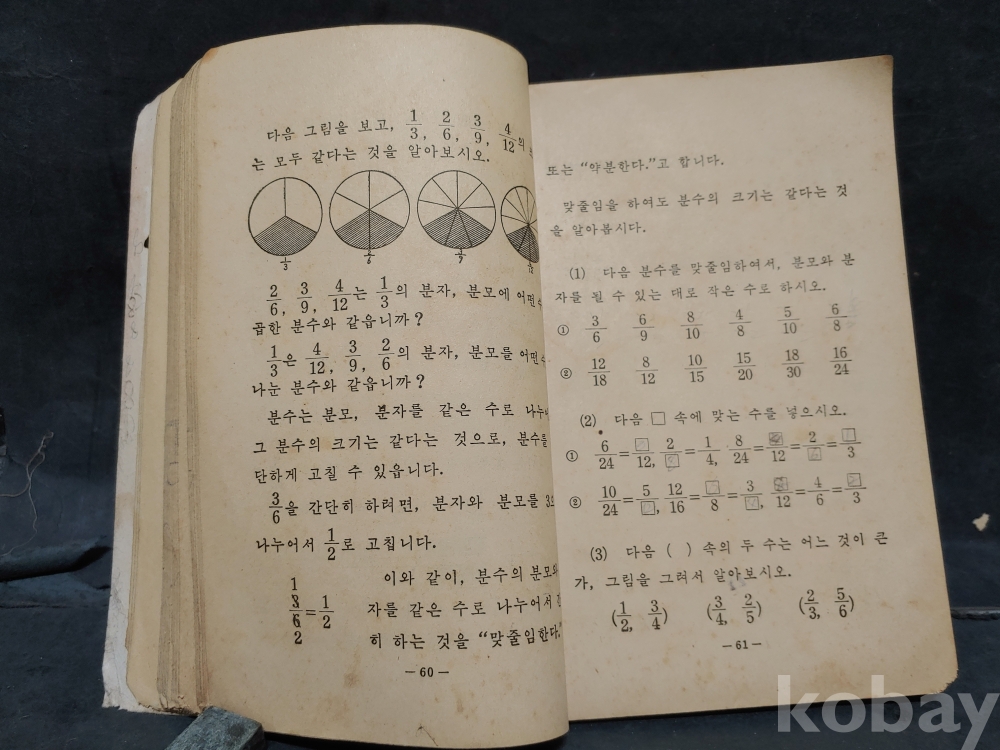 다음 그림을 보고, 1/3, 2/6, 3/9, 4/12의
는 모두 같다는 것을 알아보시오.
1/3 2/6 3/9
2/6, 3/9, 4/12는 1/3의 분자, 분모에 어떤
곱한 분수와 같읍니까?
1/3은 4/12, 3/9, 2/6의 분자, 분모를 어떤
나눈 분수와 같읍니까?
분수는 분모, 분자를 같은 수로 나누
그 분수의 크기는 같다는 것으로, 분수를
단하게 고칠 수 있읍니다.
3/6을 간단히 하려면, 분자와 분모를 3
나누어서 1/2로 고칩니다.
이와 같이, 분수의 분모와
1 3/6 2 = 1/2 자를 같은 수로 나누어서
히 하는 것을 “맞줄임한다.”
— 60 —
또는 “약분한다.”고 합니다.
맞줄임을 하여도 분수의 크기는 같다는 것
을 알아봅시다.
(1) 다음 분수를 맞줄임하여서, 분모와 분
자를 될 수 있는 대로 작은 수로 하시오.
① 3/6 6/9 8/10 4/8 5/10 6/8
② 12/18 8/12 10/15 15/20 18/30 16/24
(2) 다음 □ 속에 맞는 수를 넣으시오.
① 6/24=□/12, 2/□=1/4, 8/24=□/12=2/□=□/3
② 10/24=5/□, 12/16=□/8=3/□, □/12=4/6=□/3
(3) 다음 ( ) 속의 두 수는 어느 것이 큰
가, 그림을 그려서 알아보시오.
(1/2, 3/4) (3/4, 2/5) (2/3, 5/6)
— 61 —
kobay